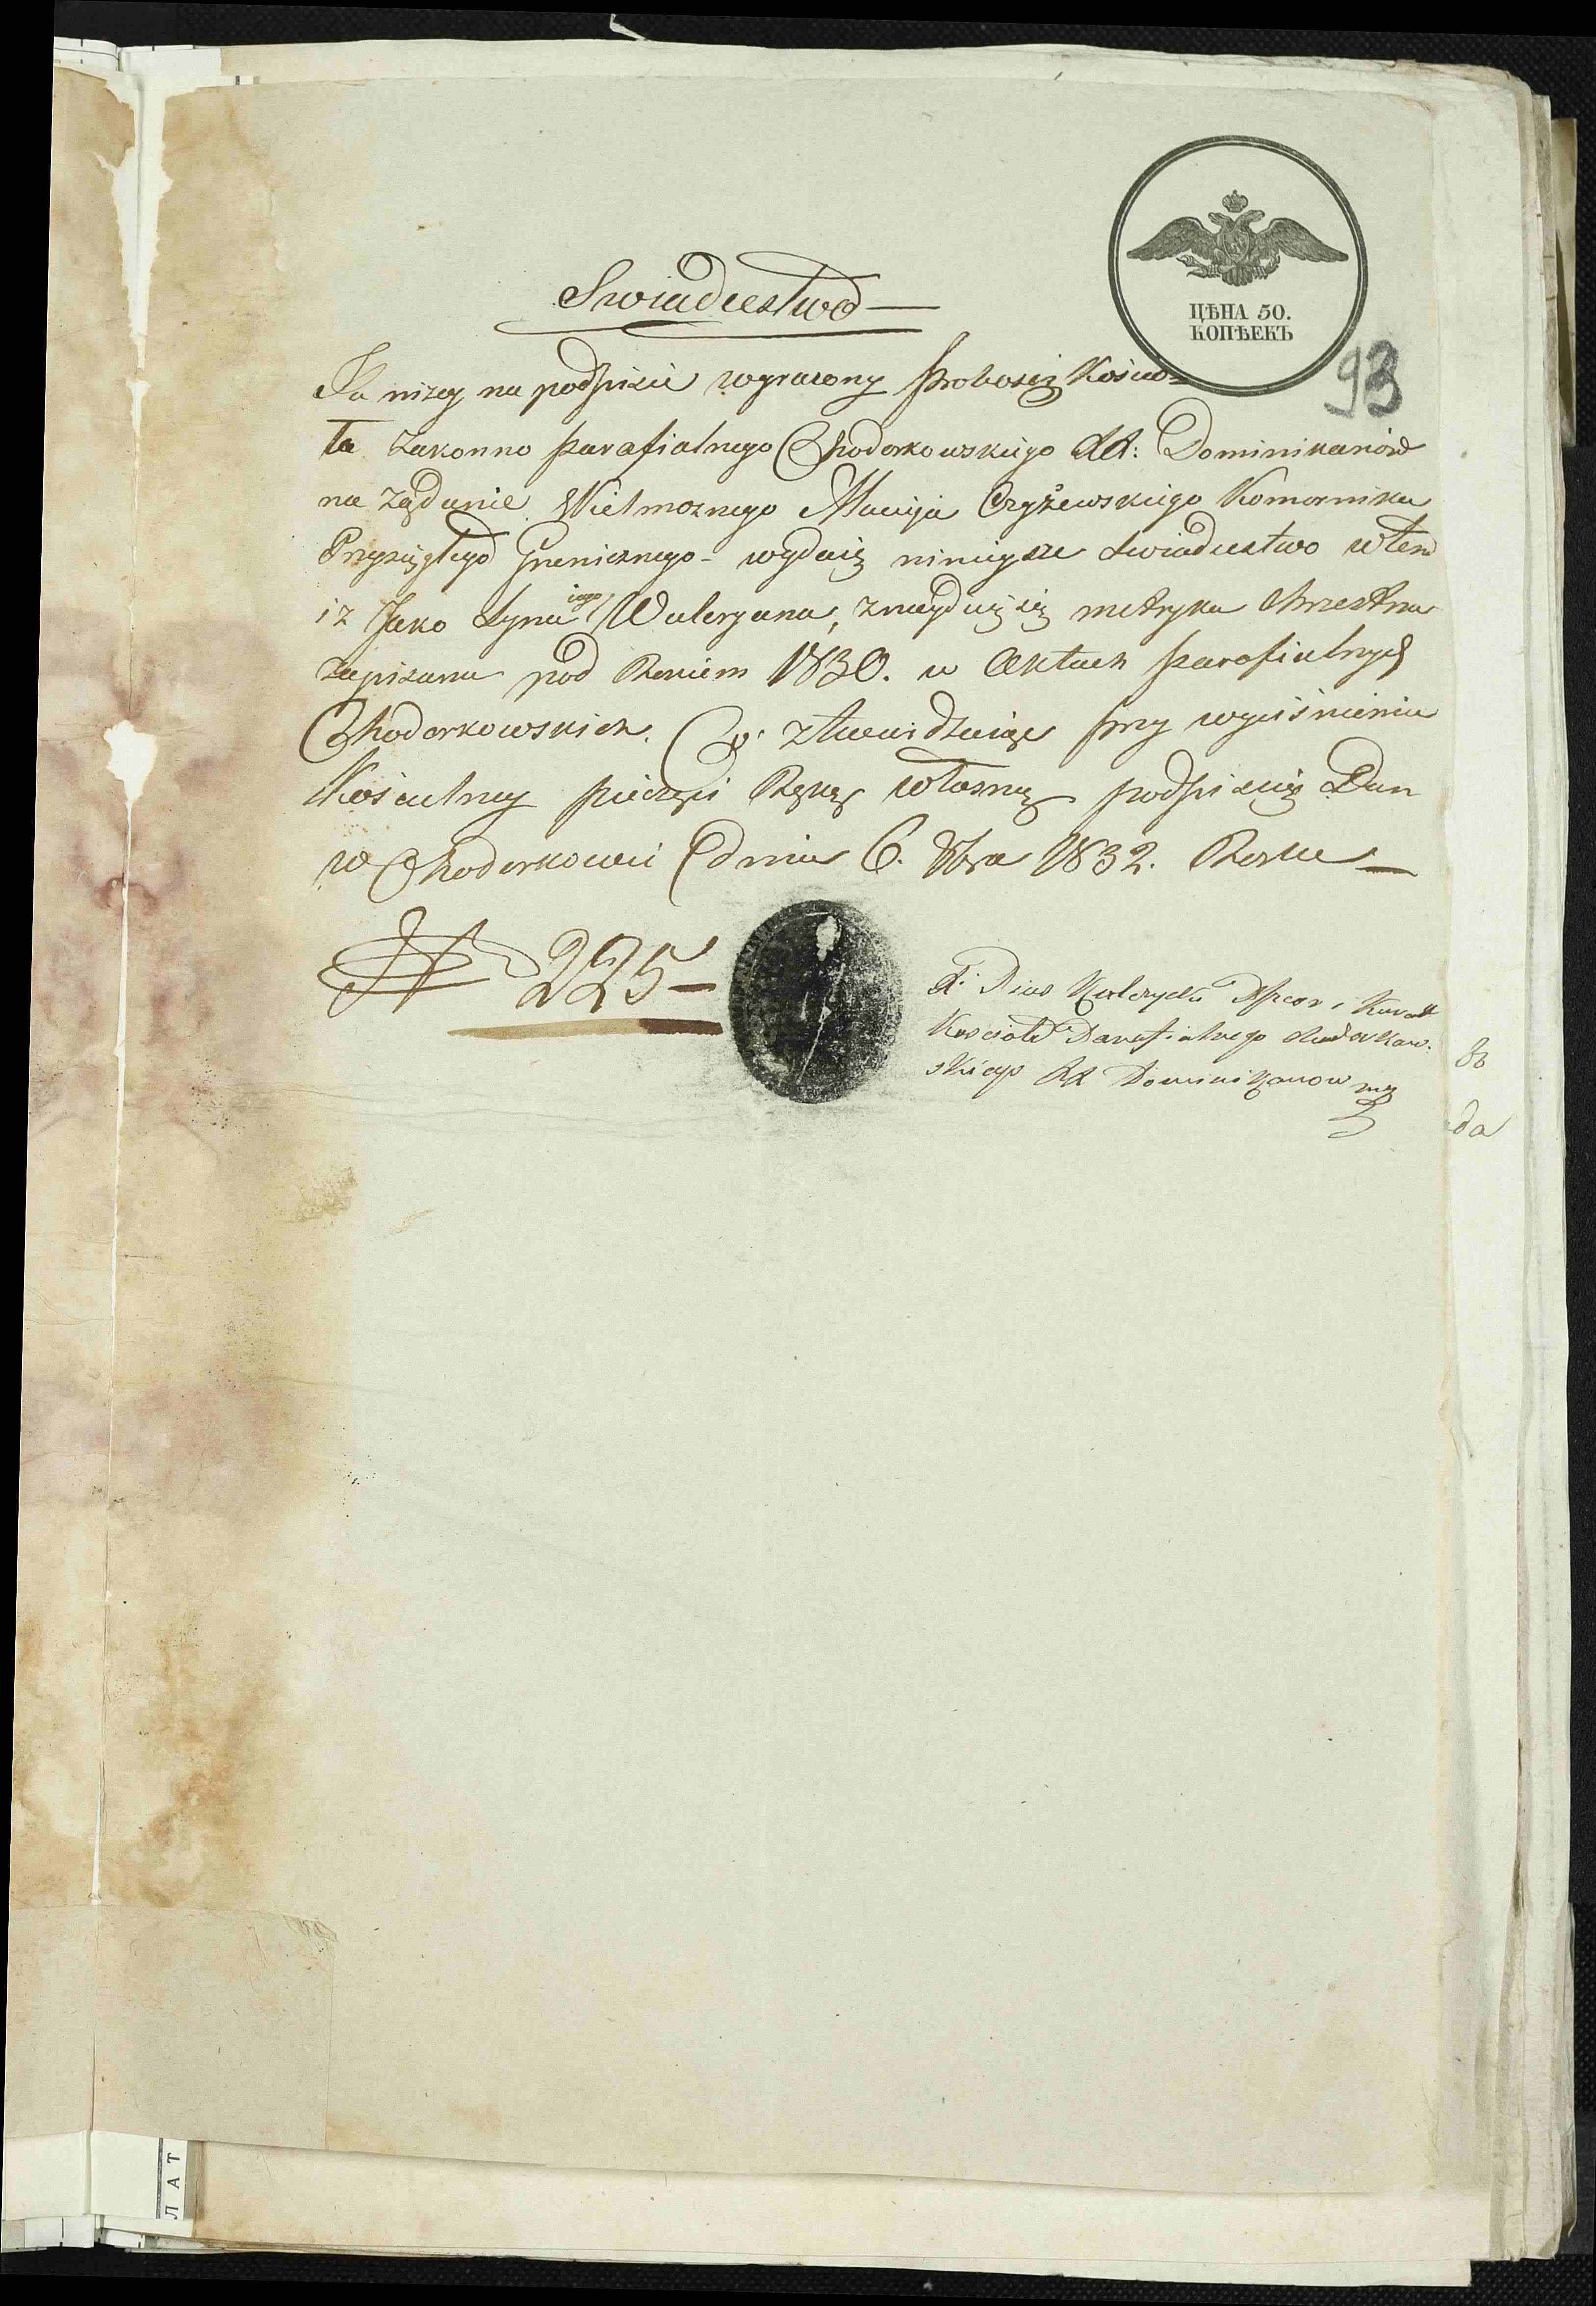 ЦѢНА 50.
КОПѢЕКЪ
93
Swiadectwo —
Ja nizey na podpisie wyrazony Proboszcz Kościo-
ła zakonno parafialnego Chodorkowskiego XX: Dominikanów
na żądanie Wielmoznego Macieja Czyżewskiego Komornika
Przysięgłego Granicznego - wydaię ninieysze Swiadectwo w tem
iz Jako Syna iego Waleryana, znayduię się metryka Chrzestna
zapisana pod Rokiem 1830. w Aktach parafialnych
Chodorkowskich. Co ztwierdzaiąc przy wyciśnieniu
Kościelney pieczęci Ręką własną podpisuię Dan
w Chodorkowie dnia 6. 8bra 1832. Roku —
N 225 —
X. Pius Przeor i Kurat
Kościoła Parafialnego Chodorkow-
skiego XX Dominikanow mp
da
Л А Т